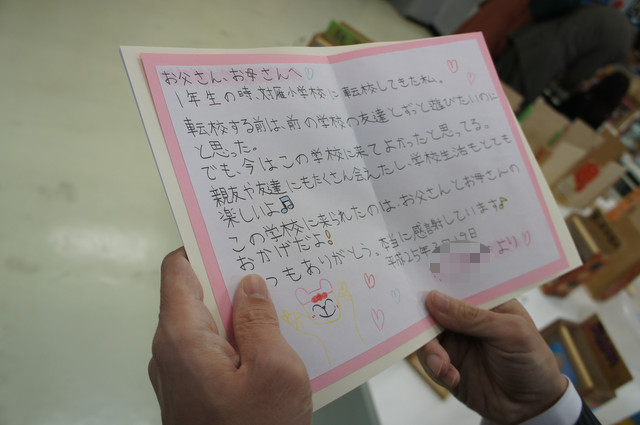 お父さん、お母さんへ♡
1年生の時、対雁小学校に転校してきた私。
転校する前は、前の学校の友達とずっと遊びたいのに
と思った。
でも、今はこの学校に来てよかったと思ってる。
親友や友達にもたくさん会えたし、学校生活もとても
楽しいよ♫
この学校に来られたのは、お父さんとお母さんの
おかげだよ!
つもありがとう。本当に感謝しています♪
平成25年2月19日
より♡